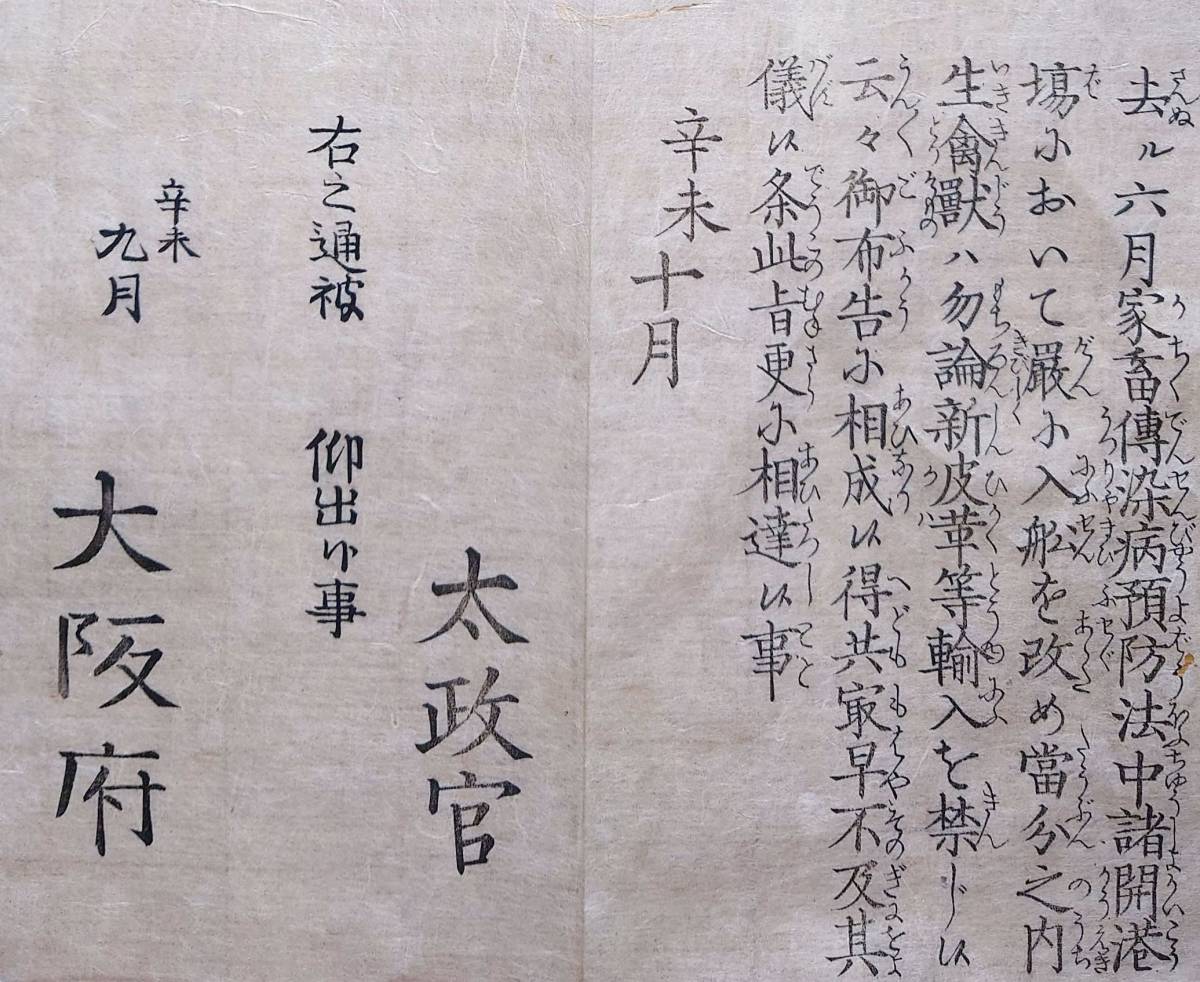 去ル六月家畜傳染病預防法中諸開港
塲において嚴に入舩を改め當分之内
生禽獸ハ勿論新皮革等輸入を禁じ候
云々御布告に相成候得共㝡早不及其
儀候条此旨更に相達候事
辛未十月
太政官
右之通被仰出候事
辛未
九月
大阪府